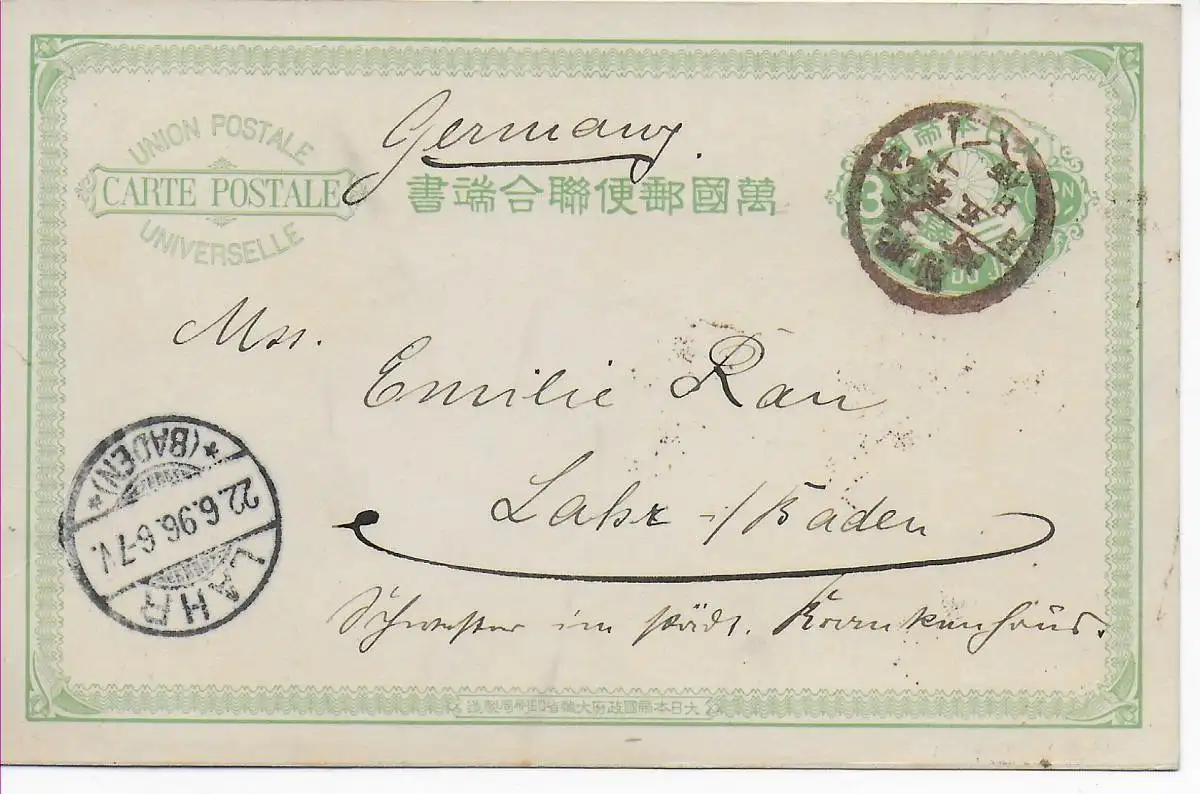 UNION POSTALE
CARTE POSTALE
UNIVERSELLE
Germany.
萬國郵便聯合端書
大日本帝國
3
Mss.
Emilie Rau
Lahr i/Baden
Schwester im städt. Krankenhaus.
LAHR
22.6.96.6-7V.
*(BADEN)*
大日本帝國政府大藏省印刷局製造